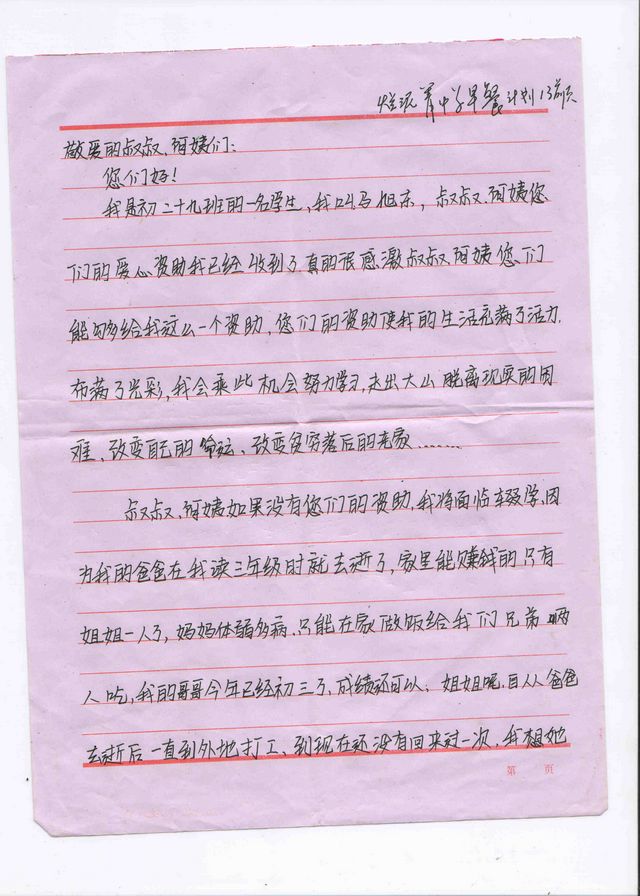 青中学早餐计划13
敬爱的叔叔、阿姨们：
您们好！
我是初二十九班的一名学生，我叫马旭东，叔叔、阿姨您
们的爱心资助我已经收到了真的很感激叔叔、阿姨您们
能够给我这么一个资助，您们的资助使我的生活充满了活力，
布满了光彩，我会乘此机会努力学习，走出大山脱离现实的困
难、改变自己的命运、改变贫穷落后的老家………
叔叔、阿姨如果没有您们的资助，我将面临辍学，因
为我的爸爸在我读三年级时就去逝了，家里能赚钱的只有
姐姐一人了，妈妈体弱多病，只能在家做饭给我们兄弟俩
人吃，我的哥哥今年已经初三了，成绩还可以；姐姐呢，自从爸爸
去逝后一直到外地打工、到现在还没有回来过一次，我想她
第 页